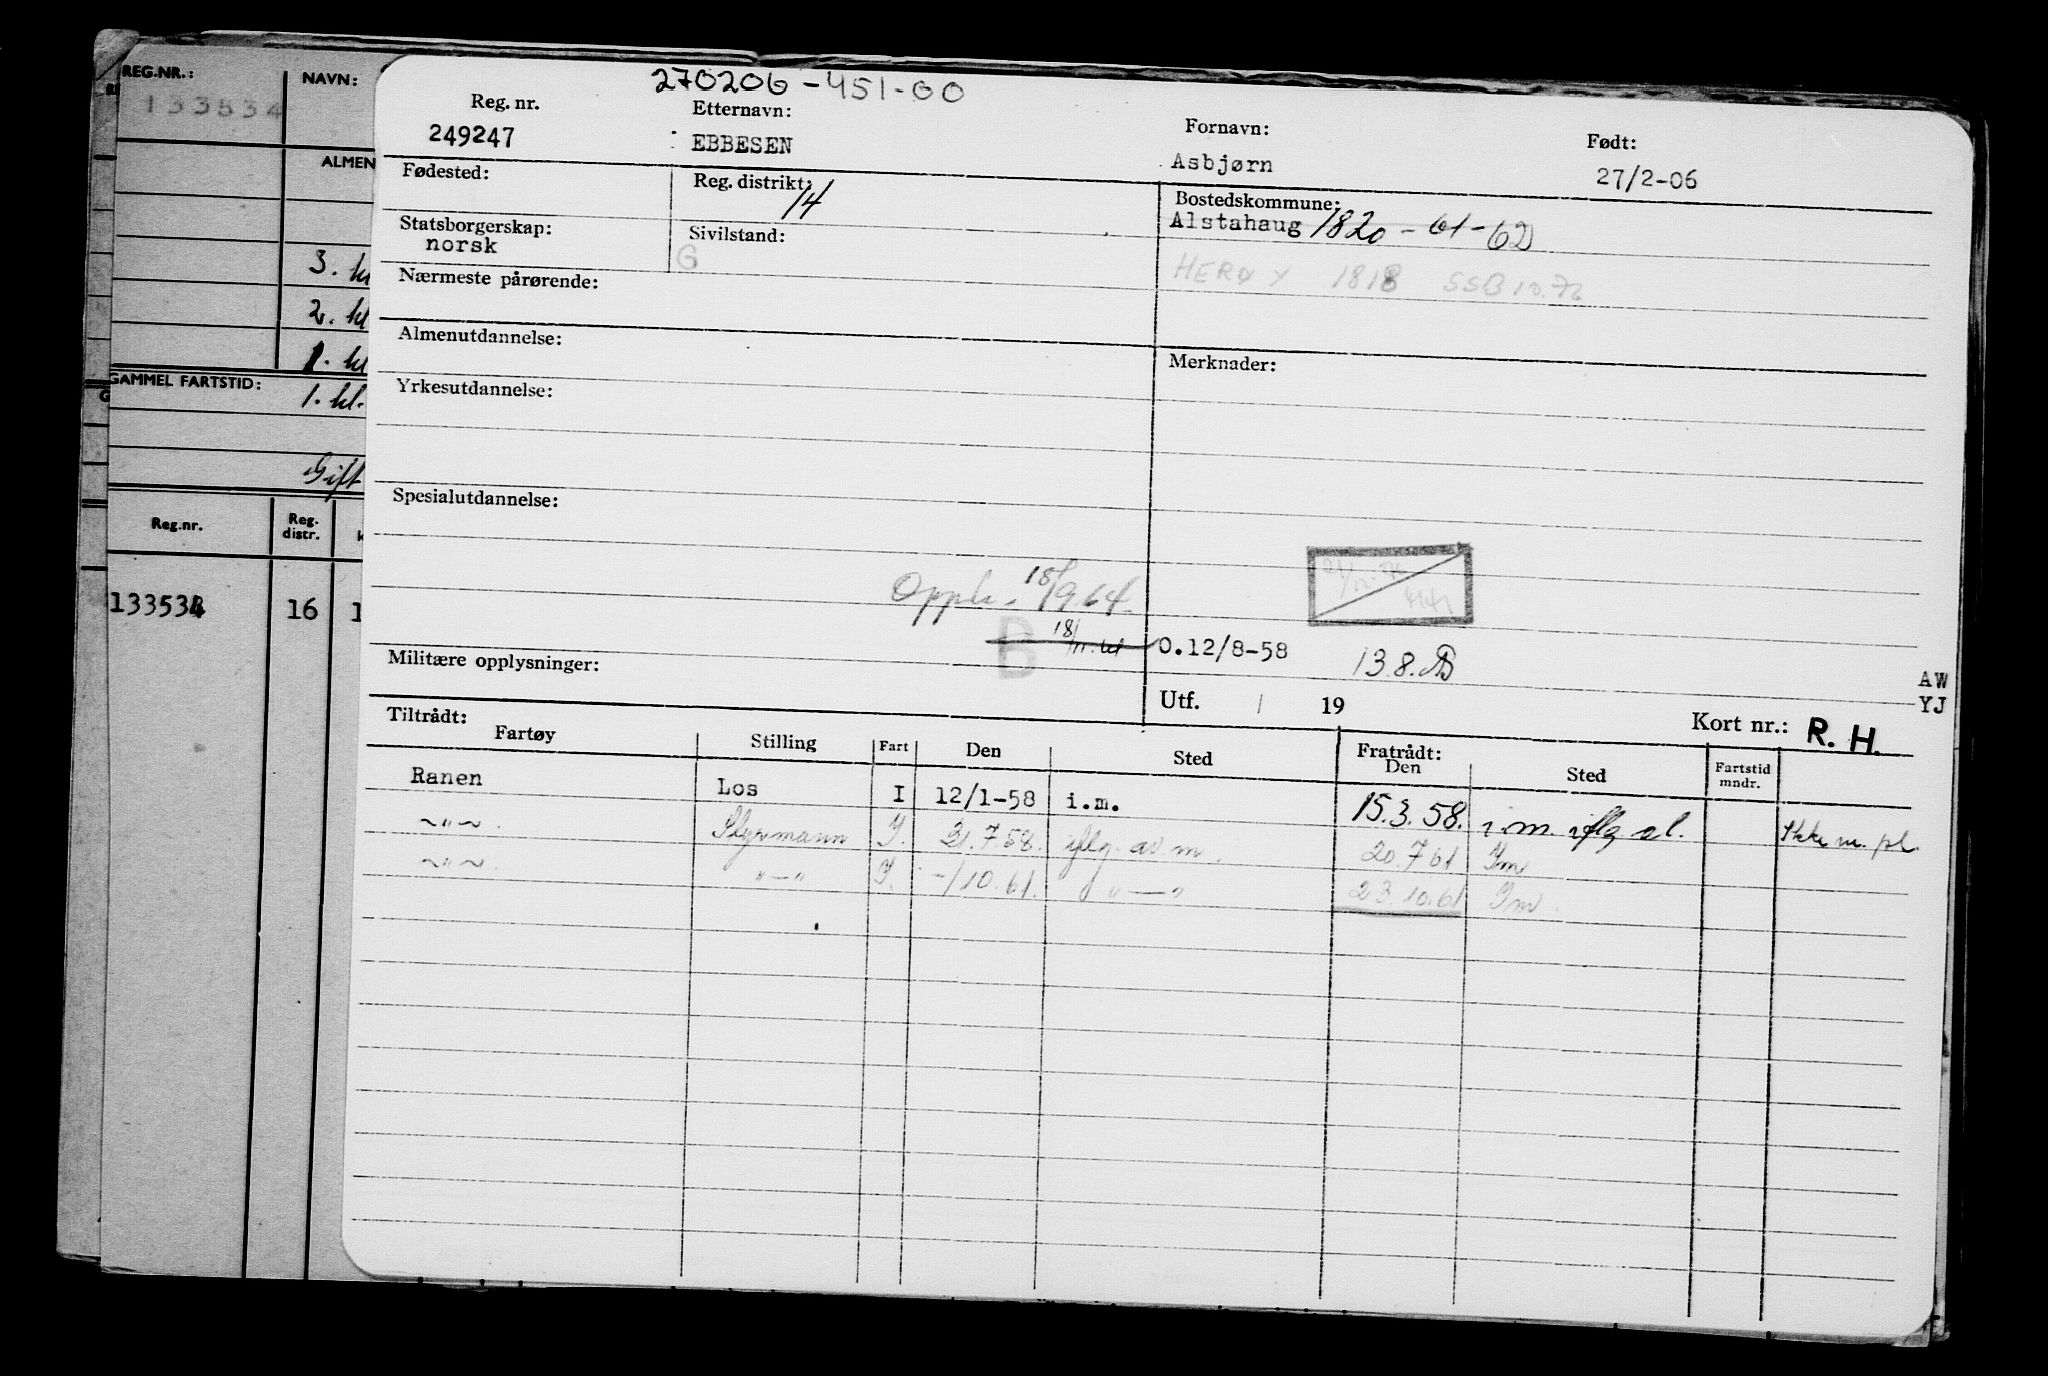 REG.NR.:
133534
NAVN:
ALMEN
3. kl
2. kl
1. kl
GAMMEL FARTSTID:
1. kl.
Gift
Reg.nr.
Reg. distr.
133534
16
1
270206-451-00
Reg. nr.
249247
Etternavn:
EBBESEN
Fornavn:
Asbjørn
Født:
27/2-06
Fødested:
Reg. distrikt:
14
Bostedskommune:
Alstahaug 1820-61-62
Statsborgerskap:
norsk
Sivilstand:
G
HERØY 1818 SSB 10.72
Nærmeste pårørende:
Almenutdannelse:
Merknader:
Yrkesutdannelse:
Spesialutdannelse:
18/9 64
B
O.12/8-58
13.8.
Militære opplysninger:
AW
YJ
Utf. / 19
Kort nr.: R. H.
Tiltrådt:
Fartøy Stilling Fart Den Sted
Fratrådt:
Den Sted Fartstid mndr.
Ranen Los I 12/1-58 i.m. 15.3.58. i m iflg al. Ikke m. pl.
~"~ Styrmann I. 21.7.58. iflg. av m. 20.7 61 Im
~"~ "—" I. -/10.61. "—" 23.10.61 Im.